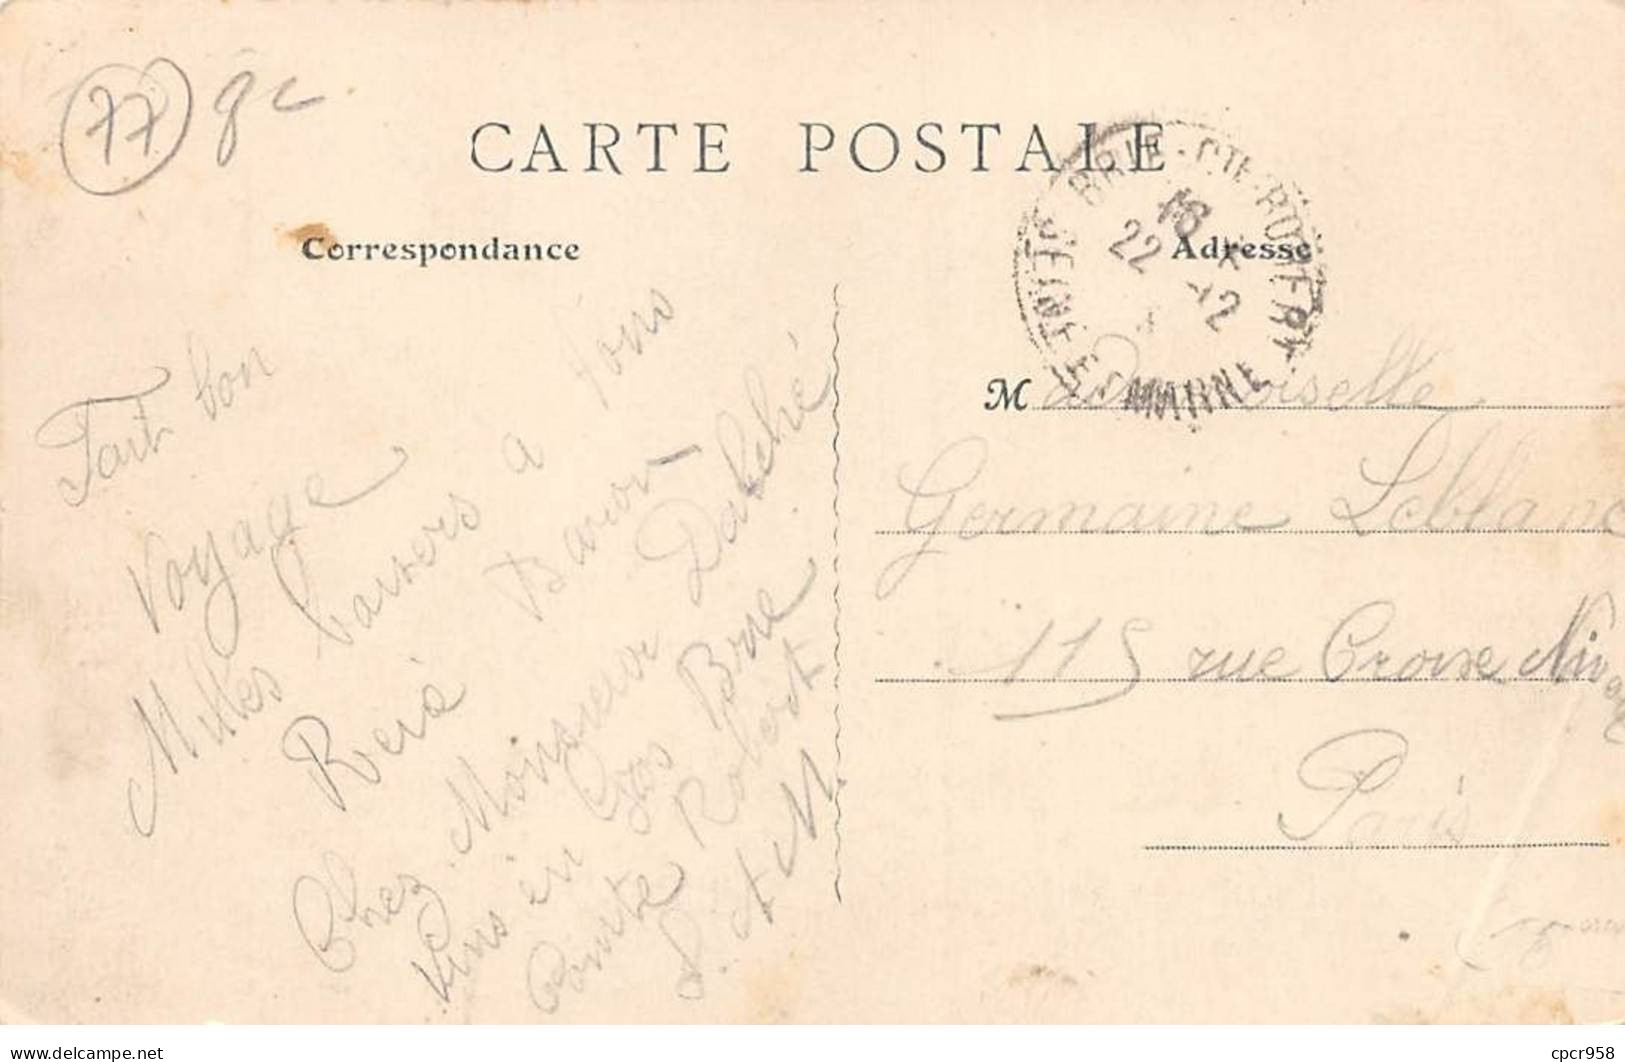 77 gc
CARTE POSTALE
BRIE-CTE-ROBERT
SEINE-ET-MARNE
16
22 -12
Correspondance
Adresse
Fait bon
Voyage
Milles baisers à tous
René Baron
Chez Monsieur Dalché
Vins en gros Brie
Comte Robert
S. et M.
M Demoiselle
Germaine Leblanc
115 rue Croix Nivert
Paris
delcampe.net
cpcr958